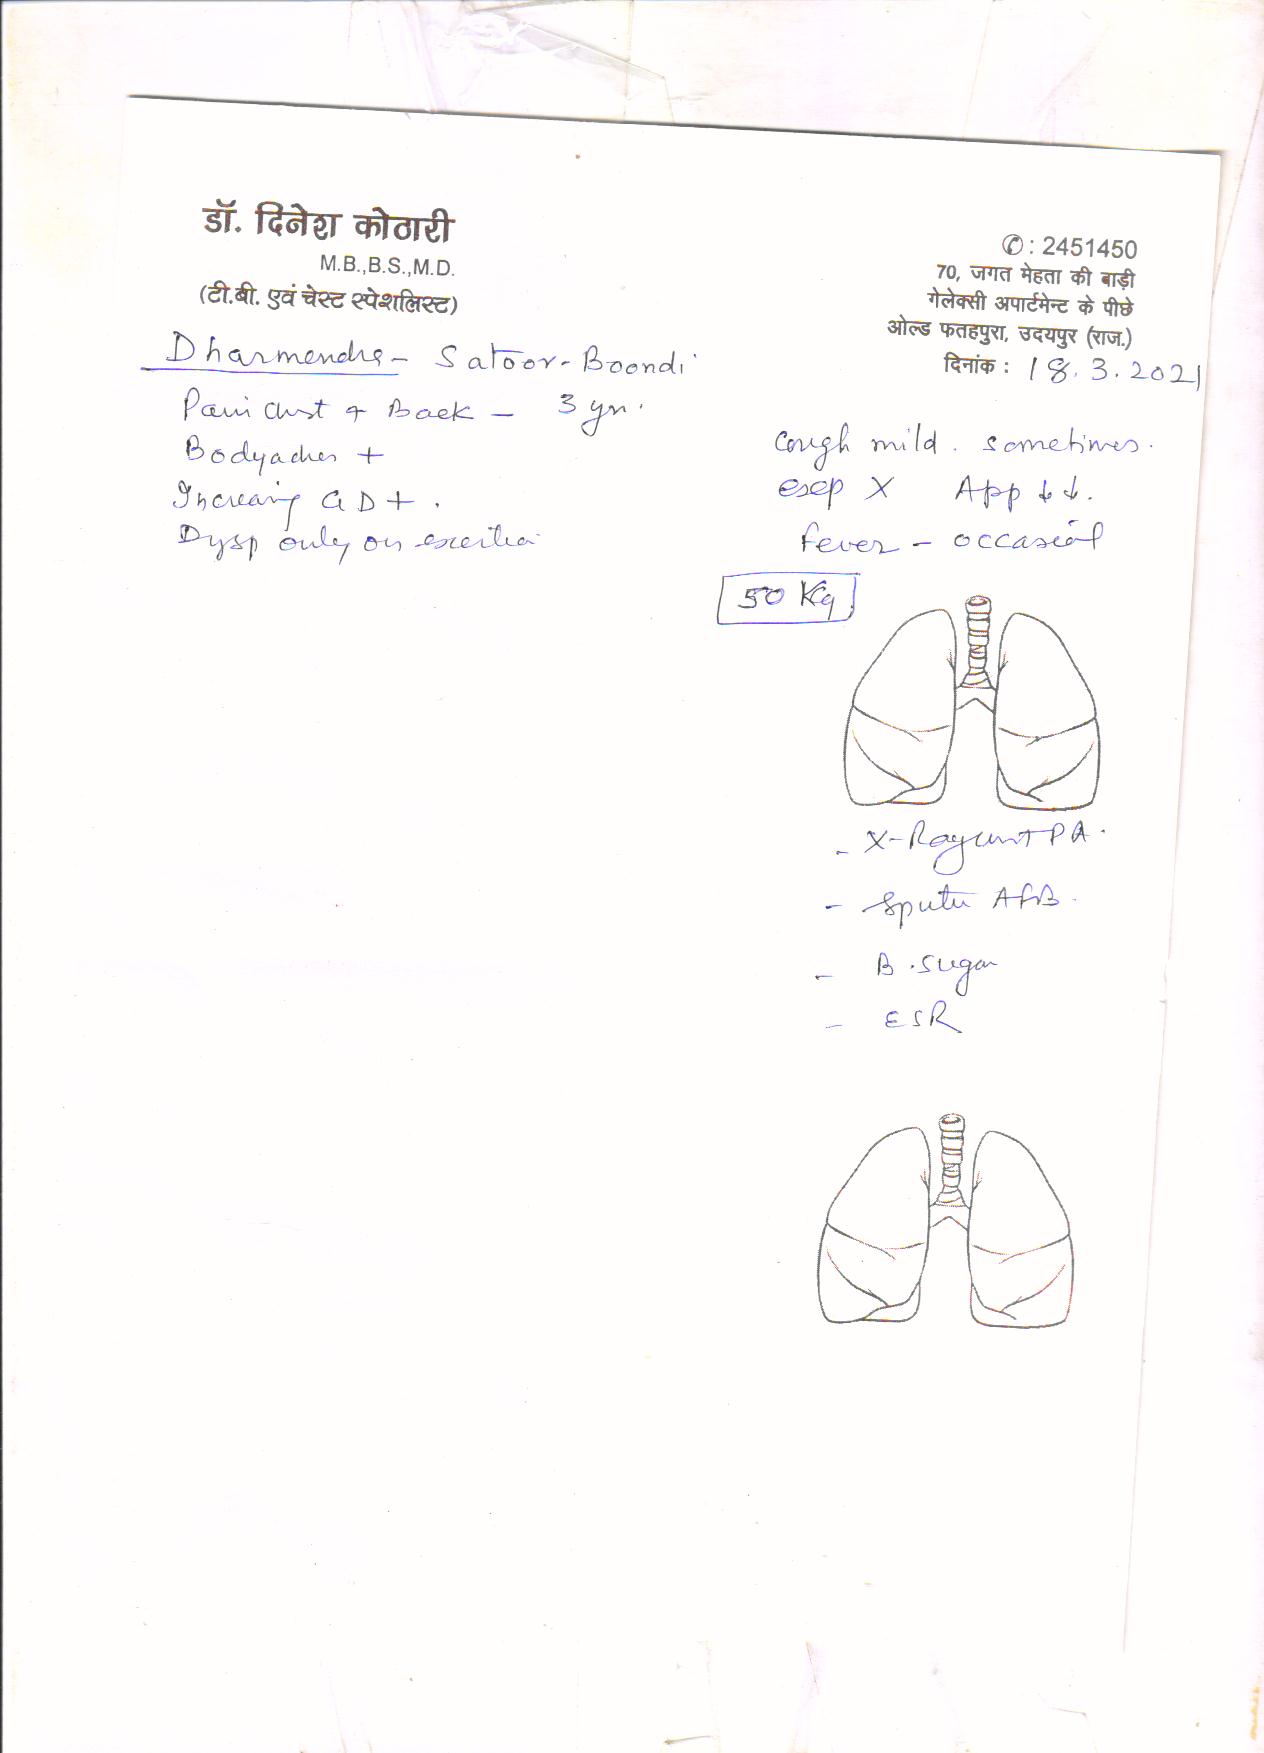 डॉ. दिनेश कोठारी
M.B.,B.S.,M.D.
(टी.बी. एवं चेस्ट स्पेशलिस्ट)
✆ : 2451450
70, जगत मेहता की बाड़ी
गेलेक्सी अपार्टमेन्ट के पीछे
ओल्ड फतहपुरा, उदयपुर (राज.)
दिनांक : 18.3.2021
Dharmendra - Satoor-Boondi
Pain Chest & Back - 3 yr.
Bodyaches +
Increasing GD +.
Dysp only on exertion
Cough mild. sometimes.
X App ↓↓.
fever - occasional
50 Kg
- X-Ray chest PA.
- Sputum AFB.
- B. Sugar
- ESR